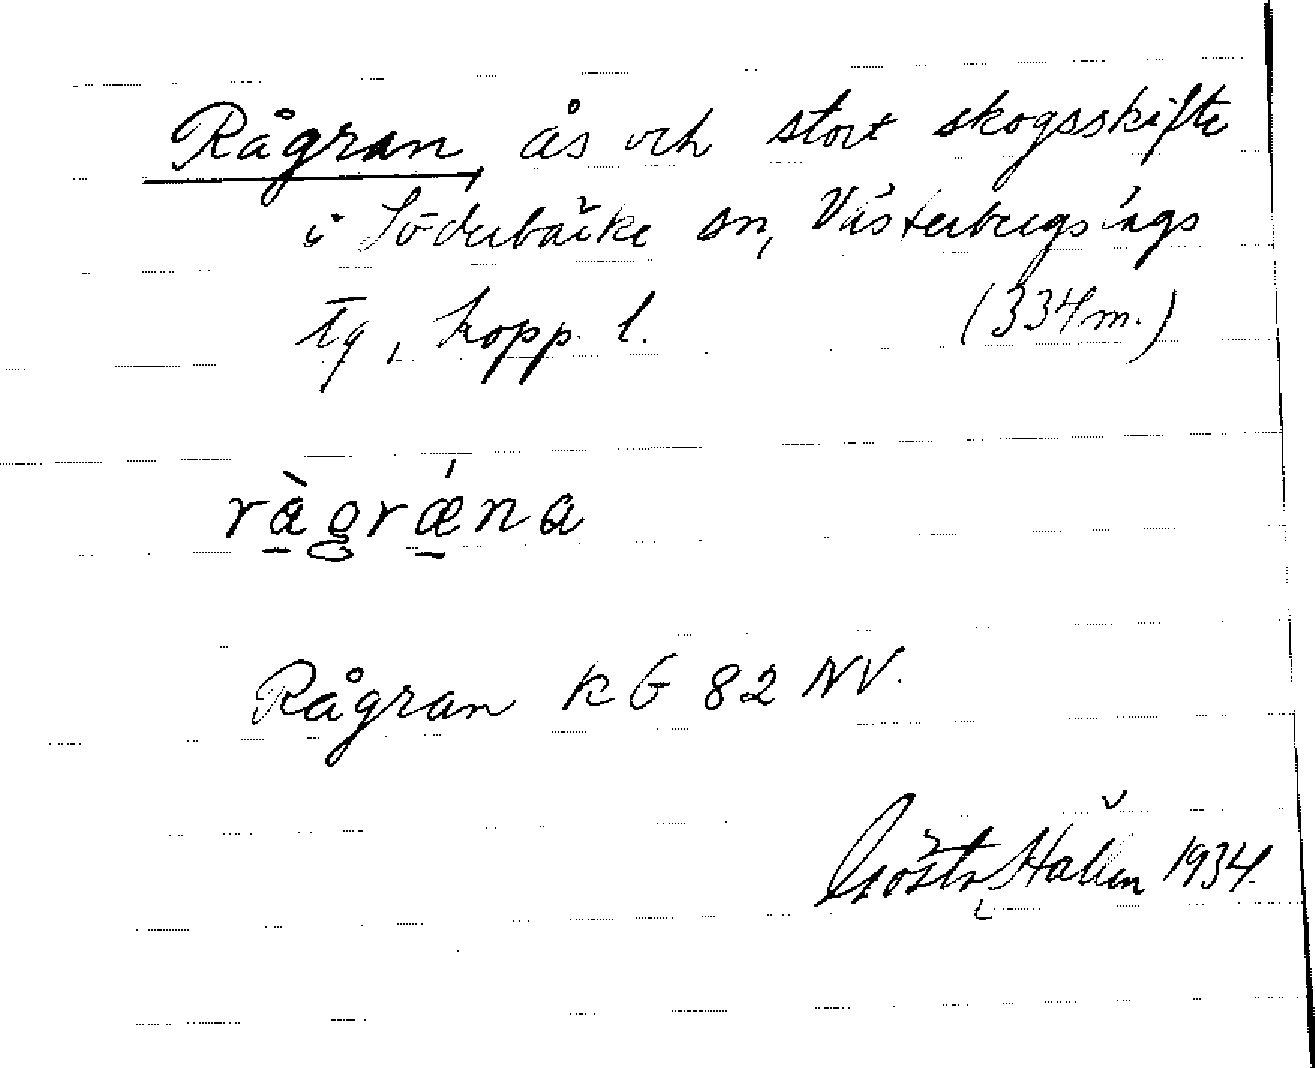 Rågran, ås och stort skogsskifte
i Söderbärke sn, Västerbergslags
tg, Kopp. l. (334 m.)
ràgrǽna
Rågran KG 82 NV.
Gösta Hallén 1934.